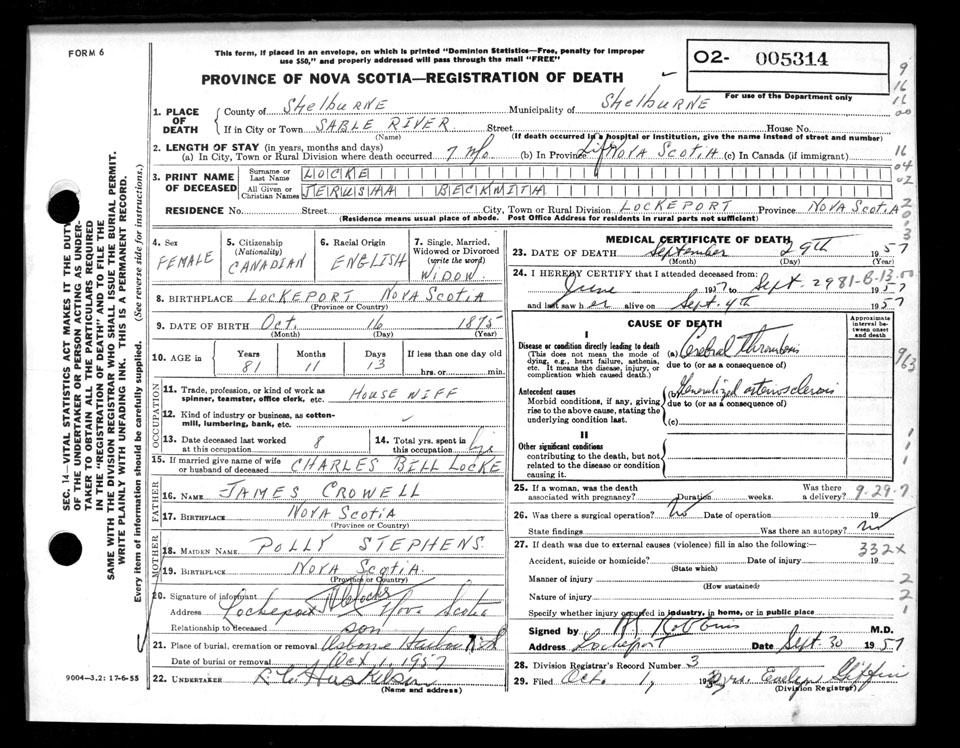 FORM 6
This form, if placed in an envelope, on which is printed "Dominion Statistics—Free, penalty for improper
use $50," and properly addressed will pass through the mail "FREE"
O2- 005314
PROVINCE OF NOVA SCOTIA—REGISTRATION OF DEATH
For use of the Department only
1. PLACE OF DEATH
County of SHELBURNE Municipality of SHELBURNE
If in City or Town SABLE RIVER Street House No.
(Name) (If death occurred in a hospital or institution, give the name instead of street and number)
2. LENGTH OF STAY (in years, months and days)
(a) In City, Town or Rural Division where death occurred 7 Mo (b) In Province Life NOVA SCOTIA (c) In Canada (if immigrant)
3. PRINT NAME OF DECEASED
Surname or Last Name LOCKE
All Given or Christian Names JERUSHA BECKWITH
RESIDENCE No. Street City, Town or Rural Division LOCKEPORT Province NOVA SCOTIA
(Residence means usual place of abode. Post Office Address for residents in rural parts not sufficient)
4. Sex FEMALE
5. Citizenship (Nationality) CANADIAN
6. Racial Origin ENGLISH
7. Single, Married, Widowed or Divorced (write the word) WIDOW
8. BIRTHPLACE LOCKEPORT NOVA SCOTIA
(Province or Country)
9. DATE OF BIRTH Oct. 16 1875
(Month) (Day) (Year)
10. AGE in Years 81 Months 11 Days 13 If less than one day old
hrs. or min.
OCCUPATION
11. Trade, profession, or kind of work as spinner, teamster, office clerk, etc. HOUSE WIFF
12. Kind of industry or business, as cotton-mill, lumbering, bank, etc.
13. Date deceased last worked at this occupation 8
14. Total yrs. spent in this occupation life
15. If married give name of wife or husband of deceased CHARLES BILL LOCKE
FATHER
16. NAME JAMES CROWELL
17. BIRTHPLACE NOVA SCOTIA
(Province or Country)
MOTHER
18. MAIDEN NAME POLLY STEPHENS
19. BIRTHPLACE NOVA SCOTIA
(Province or Country)
20. Signature of informant
Address Lockeport Nova Scotia
Relationship to deceased son
21. Place of burial, cremation or removal Osborne Harbour
Date of burial or removal Oct 1, 1957
22. UNDERTAKER
(Name and address)
MEDICAL CERTIFICATE OF DEATH
23. DATE OF DEATH September 29th 1957
(Month) (Day) (Year)
24. I HEREBY CERTIFY that I attended deceased from:
June 1957 to Sept. 29 1957
81-B-13.00
and last saw her alive on Sept. 4th 1957
CAUSE OF DEATH
Approximate interval between onset and death
I
Disease or condition directly leading to death
(This does not mean the mode of dying, e.g., heart failure, asthenia, etc. It means the disease, injury, or complication which caused death.)
(a) Cerebral Thrombosis
due to (or as a consequence of)
Antecedent causes
Morbid conditions, if any, giving rise to the above cause, stating the underlying condition last.
(b) Generalized arteriosclerosis
due to (or as a consequence of)
(c)
II
Other significant conditions
contributing to the death, but not related to the disease or condition causing it.
25. If a woman, was the death associated with pregnancy? Duration weeks. Was there a delivery?
9-29-7
26. Was there a surgical operation? No Date of operation 19
State findings Was there an autopsy? No
27. If death was due to external causes (violence) fill in also the following:—
332x
Accident, suicide or homicide? Date of injury 19
(State which)
Manner of injury
(How sustained)
Nature of injury
Specify whether injury occurred in industry, in home, or in public place
Signed by Robbins M.D.
Address Lockeport Date Sept. 30 1957
28. Division Registrar's Record Number 3
29. Filed Oct. 1, 195 Mrs. Evelyn Giffin
(Division Registrar)
9004-3.2: 17-6-55
SEC. 14—VITAL STATISTICS ACT MAKES IT THE DUTY
OF THE UNDERTAKER OR PERSON ACTING AS UNDER-
TAKER TO OBTAIN ALL THE PARTICULARS REQUIRED
IN THE "REGISTRATION OF DEATH" AND TO FILE THE
SAME WITH THE DIVISION REGISTRAR WHO SHALL ISSUE THE BURIAL PERMIT.
WRITE PLAINLY WITH UNFADING INK. THIS IS A PERMANENT RECORD.
Every item of information should be carefully supplied. (See reverse side for instructions.)
9
16
11
00
16
04
02
2
0
1
3
9/63
1
1
1
2
2
1